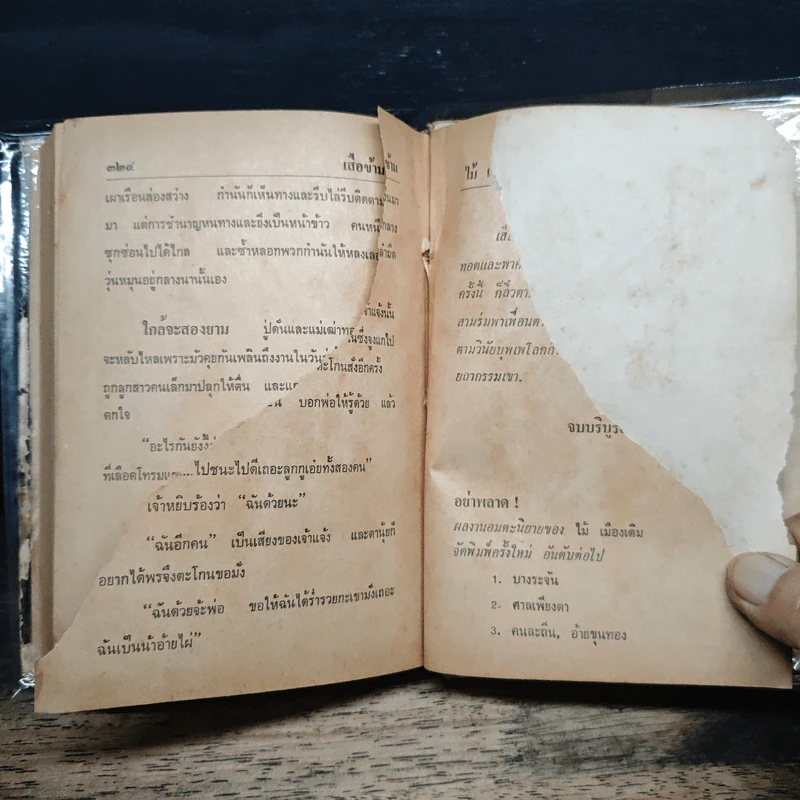 ๓๒๔ เสือข้าม
เผาเรือนส่องสว่าง กำนันก็เห็นทางและรีบไล่รีบติดตาม
มา แต่การชำนาญหนทางและยิ่งเป็นหน้าข้าว คนหนี
ซุกซ่อนไปได้ไกล และซ้ำหลอกพวกกำนันให้หลง
วุ่นหมุนอยู่กลางนานั้นเอง
ใกล้จะสองยาม ปู่ดั่นและแม่เฒ่า
จะหลับไหลเพราะมัวคุยกันเพลินถึงงานใน
ถูกลูกสาวคนเล็กมาปลุกให้ตื่น
บอกพ่อให้รู้ด้วย แล้ว
ตกใจ
“อะไรกัน
ที่เลือดโทรม
ไปชนะไปดีเถอะลูกกูเอ๋ยทั้งสองคน”
เจ้าหยิบร้องว่า “ฉันด้วยนะ”
“ฉันอีกคน” เป็นเสียงของเจ้าแจ้ง และตานุ้ยก็
อยากได้พรจึงตะโกนขอมั่ง
“ฉันด้วยจ้ะพ่อ ขอให้ฉันได้ร่ำรวยกะเขามั่งเถอะ
ฉันเป็นน้าอ้ายไผ่”
ไม้
ทอดและพา
ครั้งนี้ ก็ลิ่วตา
สามร่มพาเพื่อน
ตามวินัยบุพเพโลก
ยถากรรมเขา.
จบบริบูร
อย่าพลาด !
ผลงานอมตะนิยายของ ไม้ เมืองเดิม
จัดพิมพ์ครั้งใหม่ อันดับต่อไป
1. บางระจัน
2. ศาลเพียงตา
3. คนละถิ่น, อ้ายขุนทอง